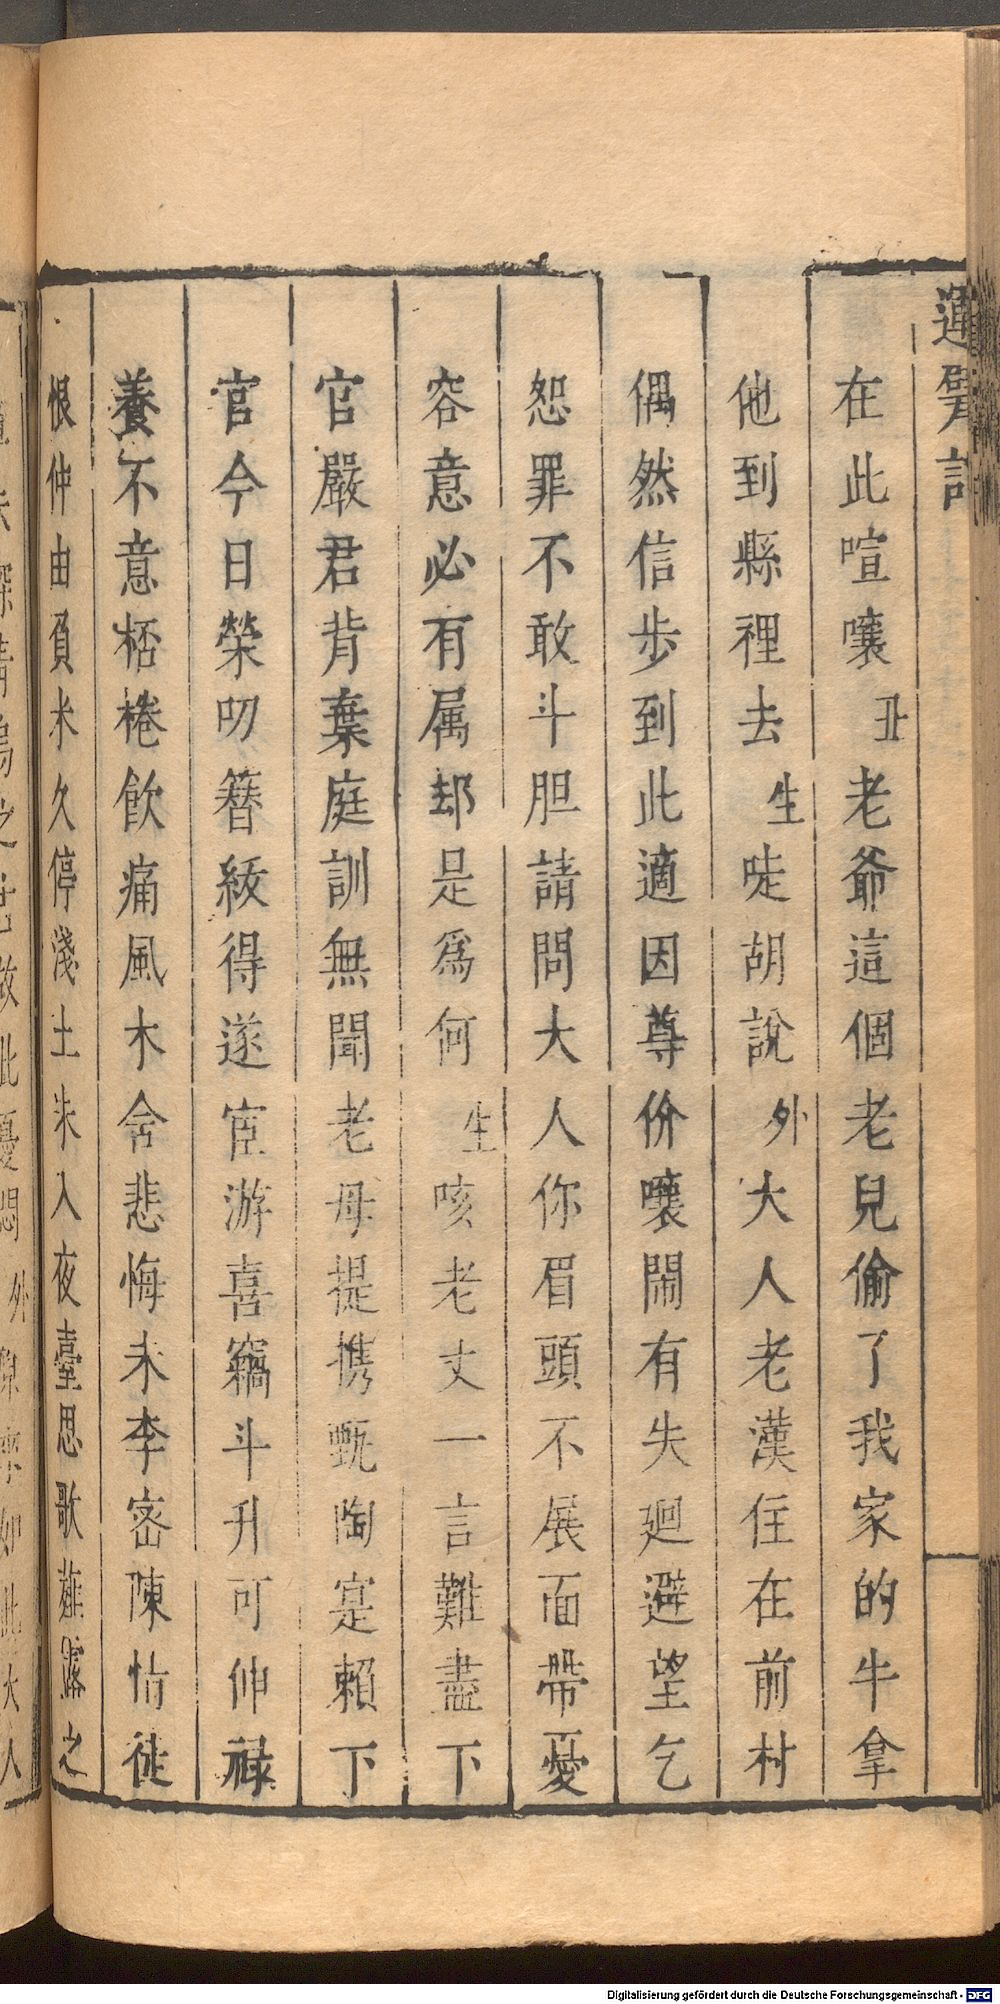 運甓記
在此喧嚷丑老爺這個老兒偷了我家的牛拿
他到縣裡去生唗胡說外大人老漢住在前村
偶然信步到此適因尊价嚷鬧有失廻避望乞
恕罪不敢斗胆請問大人你眉頭不展面帶憂
容意必有属却是爲何生咳老丈一言難盡下
官嚴君背棄庭訓無聞老母提携甄陶寔賴下
官今日榮叨簪紱得遂宦游喜竊斗升可伸祿
養不意桮棬飲痛風木含悲悔未李密陳情徒
恨仲由負米久停淺土未入夜臺思歌薤露之
Digitalisierung gefördert durch die Deutsche Forschungsgemeinschaft - DFG